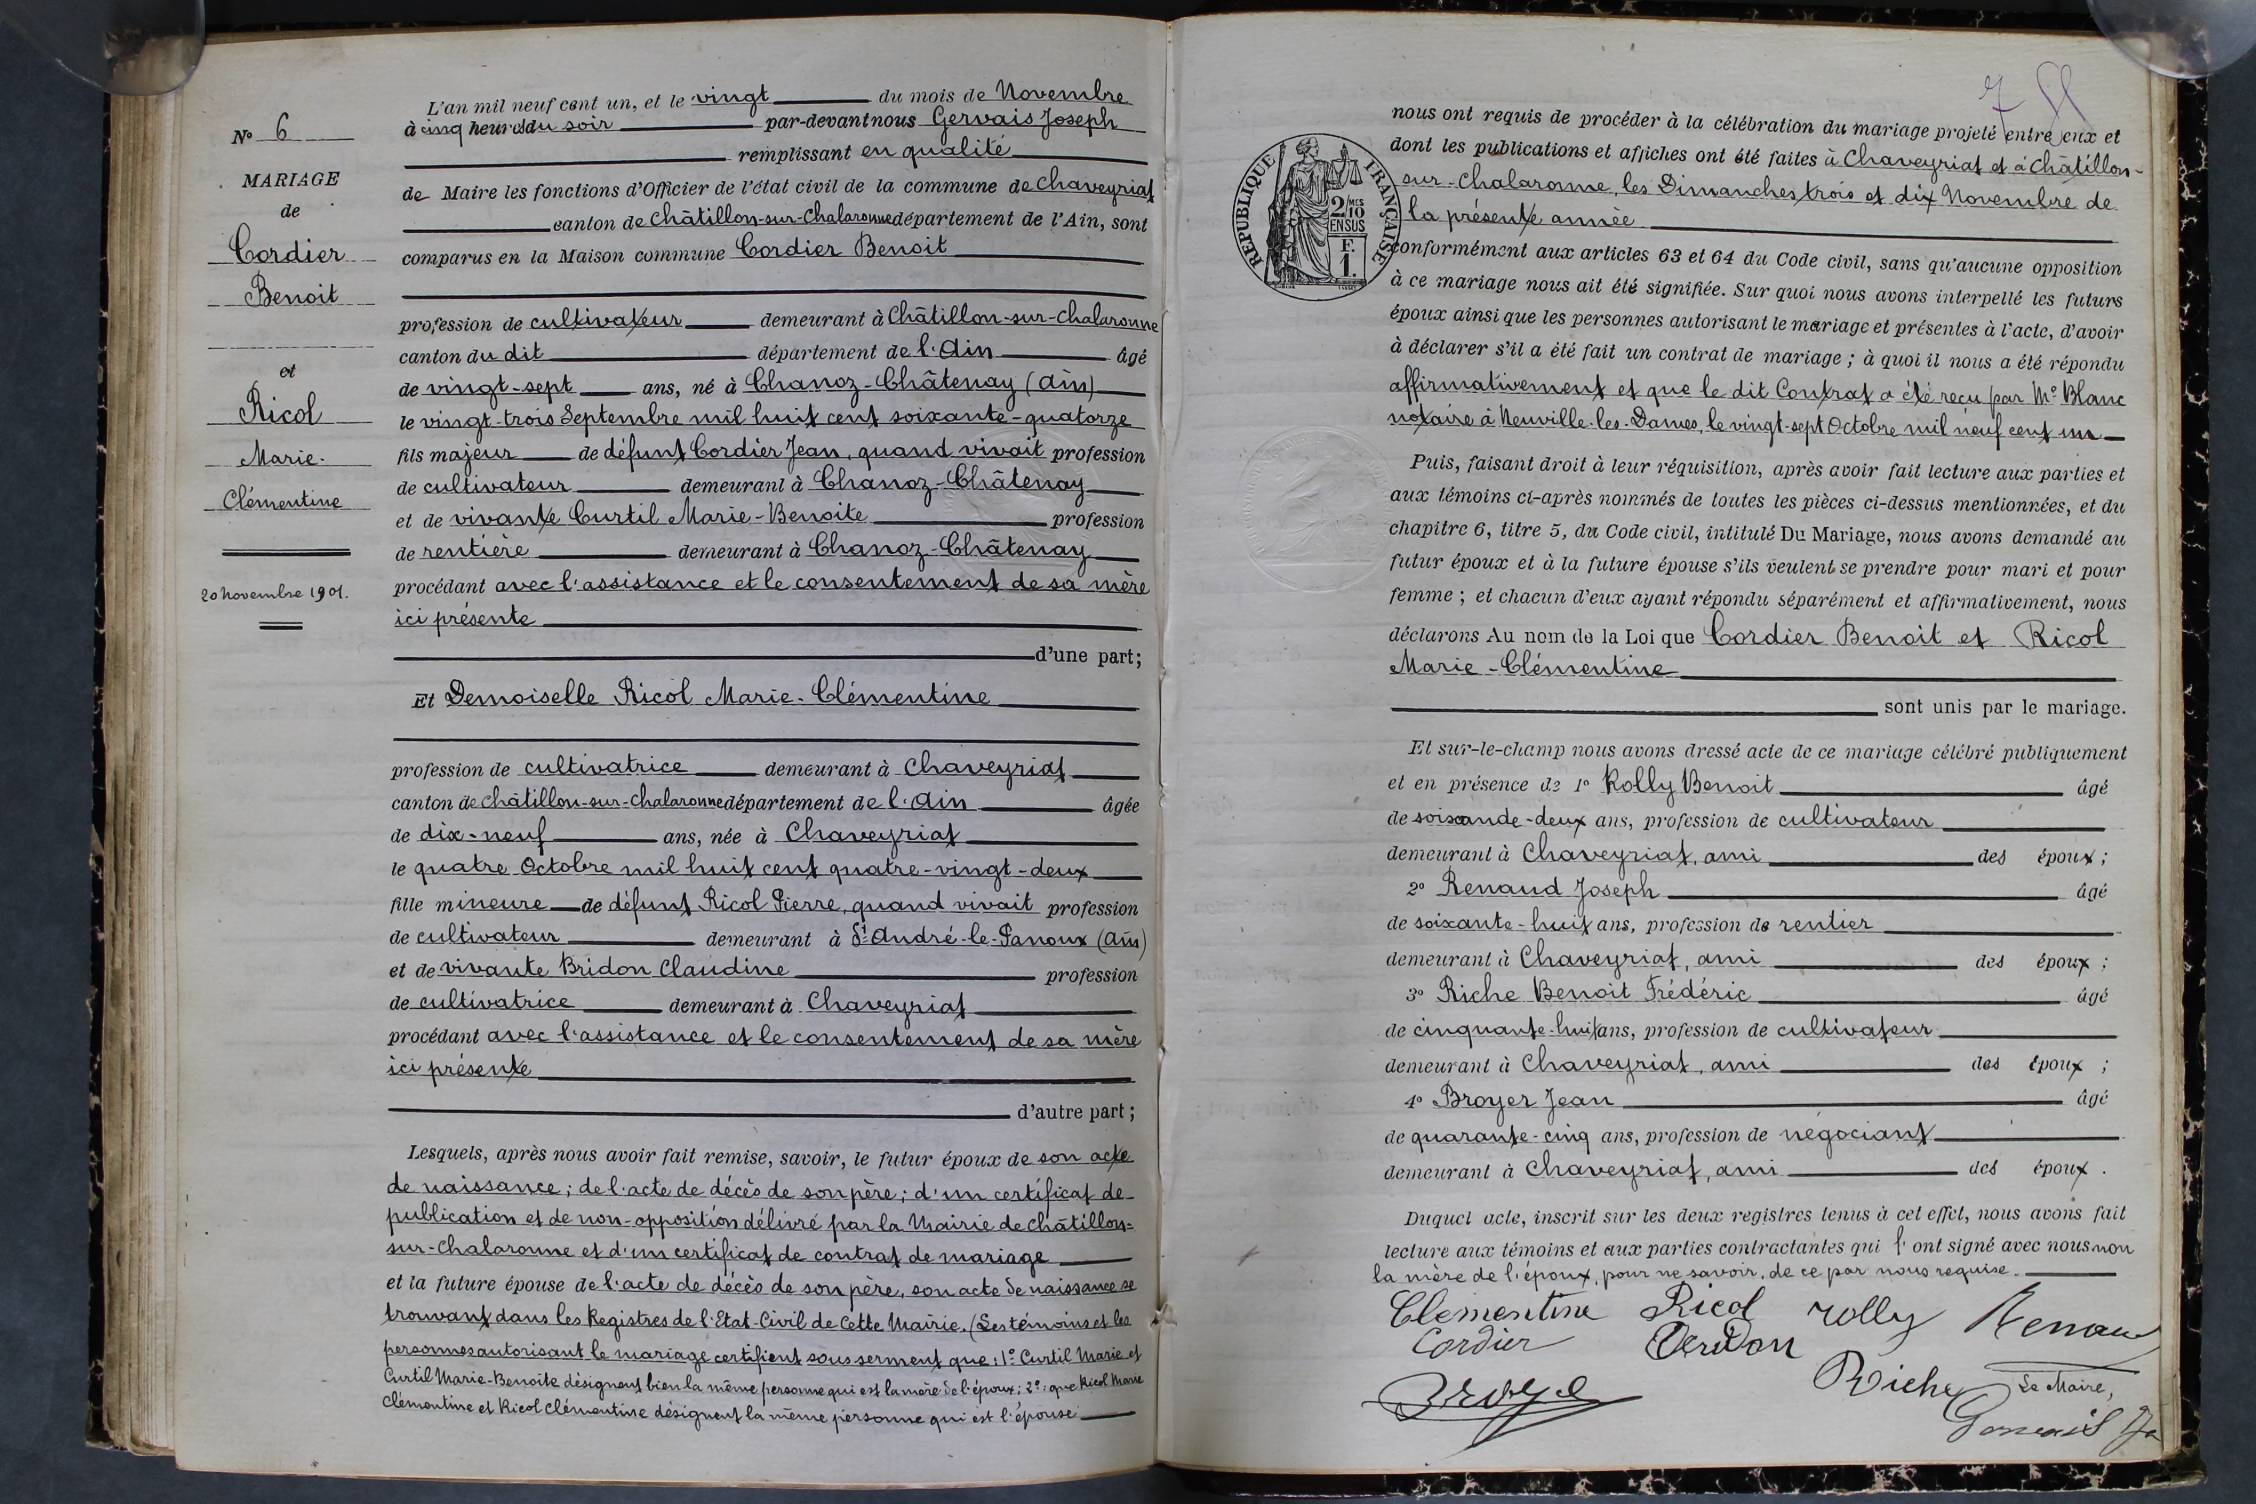 N° 6
MARIAGE
de
Cordier
Benoit
et
Ricol
Marie-
Clémentine
20 novembre 1901.
L'an mil neuf cent un, et le vingt du mois de Novembre
à cinq heures du soir par-devant nous Gervais Joseph
remplissant en qualité
de Maire les fonctions d'Officier de l'état civil de la commune de Chaveyriat
canton de Châtillon-sur-Chalaronne département de l'Ain, sont
comparus en la Maison commune Cordier Benoit
profession de cultivateur demeurant à Châtillon-sur-Chalaronne
canton du dit département de l'Ain âgé
de vingt-sept ans, né à Chanoz-Châtenay (Ain)
le vingt-trois Septembre mil huit cent soixante-quatorze
fils majeur de défunt Cordier Jean, quand vivait profession
de cultivateur demeurant à Chanoz-Châtenay
et de vivante Curtil Marie-Benoite profession
de rentière demeurant à Chanoz-Châtenay
procédant avec l'assistance et le consentement de sa mère
ici présente
d'une part;
Et Demoiselle Ricol Marie-Clémentine
profession de cultivatrice demeurant à Chaveyriat
canton de Châtillon-sur-Chalaronne département de l'Ain âgée
de dix-neuf ans, née à Chaveyriat
le quatre Octobre mil huit cent quatre-vingt-deux
fille mineure de défunt Ricol Pierre, quand vivait profession
de cultivateur demeurant à St André-le-Panoux (Ain)
et de vivante Bridon Claudine profession
de cultivatrice demeurant à Chaveyriat
procédant avec l'assistance et le consentement de sa mère
ici présente
d'autre part;
Lesquels, après nous avoir fait remise, savoir, le futur époux de son acte
de naissance; de l'acte de décès de son père; d'un certificat de
publication et de non-opposition délivré par la Mairie de Châtillon-
sur-Chalaronne et d'un certificat de contrat de mariage
et la future épouse de l'acte de décès de son père, son acte de naissance se
trouvant dans les Registres de l'Etat-Civil de cette Mairie. (Les témoins et les
personnes autorisant le mariage certifient sous serment que: 1° Curtil Marie et
Curtil Marie-Benoite désignent bien la même personne qui est la mère de l'époux; 2°: que Ricol Marie
Clémentine et Ricol Clémentine désignent la même personne qui est l'épouse
7
REPUBLIQUE FRANÇAISE
2/10 MES
EN SUS
F.
1.
nous ont requis de procéder à la célébration du mariage projeté entre eux et
dont les publications et affiches ont été faites à Chaveyriat et à Châtillon-
sur-Chalaronne, les Dimanches trois et dix Novembre de
la présente année
conformément aux articles 63 et 64 du Code civil, sans qu'aucune opposition
à ce mariage nous ait été signifiée. Sur quoi nous avons interpellé les futurs
époux ainsi que les personnes autorisant le mariage et présentes à l'acte, d'avoir
à déclarer s'il a été fait un contrat de mariage; à quoi il nous a été répondu
affirmativement et que le dit Contrat a été reçu par Me Blanc
notaire à Neuville-les-Dames, le vingt-sept Octobre mil neuf cent un
Puis, faisant droit à leur réquisition, après avoir fait lecture aux parties et
aux témoins ci-après nommés de toutes les pièces ci-dessus mentionnées, et du
chapitre 6, titre 5, du Code civil, intitulé Du Mariage, nous avons demandé au
futur époux et à la future épouse s'ils veulent se prendre pour mari et pour
femme; et chacun d'eux ayant répondu séparément et affirmativement, nous
déclarons Au nom de la Loi que Cordier Benoit et Ricol
Marie-Clémentine
sont unis par le mariage.
Et sur-le-champ nous avons dressé acte de ce mariage célébré publiquement
et en présence de 1° Rolly Benoit âgé
de soixande-deux ans, profession de cultivateur
demeurant à Chaveyriat, ami des époux;
2° Renaud Joseph âgé
de soixante-huit ans, profession de rentier
demeurant à Chaveyriat, ami des époux;
3° Riche Benoit Frédéric âgé
de cinquante-huit ans, profession de cultivateur
demeurant à Chaveyriat, ami des époux;
4° Broyer Jean âgé
de quarante-cinq ans, profession de négociant
demeurant à Chaveyriat, ami des époux.
Duquel acte, inscrit sur les deux registres tenus à cet effet, nous avons fait
lecture aux témoins et aux parties contractantes qui l'ont signé avec nous non
la mère de l'époux, pour ne savoir, de ce par nous requise.
Clementine Ricol rolly Renau
Cordier
Riche Le Maire,
Broye
Gervais